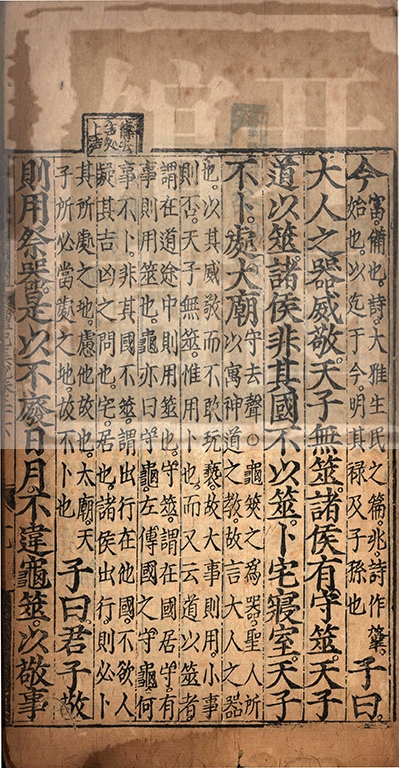 今富備也。詩。大雅生民之篇。兆。詩作肇。
始也。以迄于今。明其禄及子孫也子曰。
大人之器威敬。天子無筮。諸侯有守筮。天子
道以筮。諸侯非其國不以筮。卜宅寢室。天子
不卜處大廟守去聲○龜筴之爲器。聖人所
以寓神道之教。故言大人之器
也。以其威敬而不敢玩褻。故大事則用卜。小事
則否。天子無筮。惟用卜也。而又云道以筮者
謂在道途中則用筮也。守筮。謂在國居守有
事則用筮也。龜亦曰守龜。左傳國之守龜何
事不卜。非其國不筮。謂出行在他國。不欲人
疑其吉凶之問也。宅。居也。諸侯出行。則必卜
其所處之地。慮他故也。太廟。天
子所必當處之地。故不卜也子曰君子敬
則用祭器。是以不廢日月。不違龜筮。以敬事